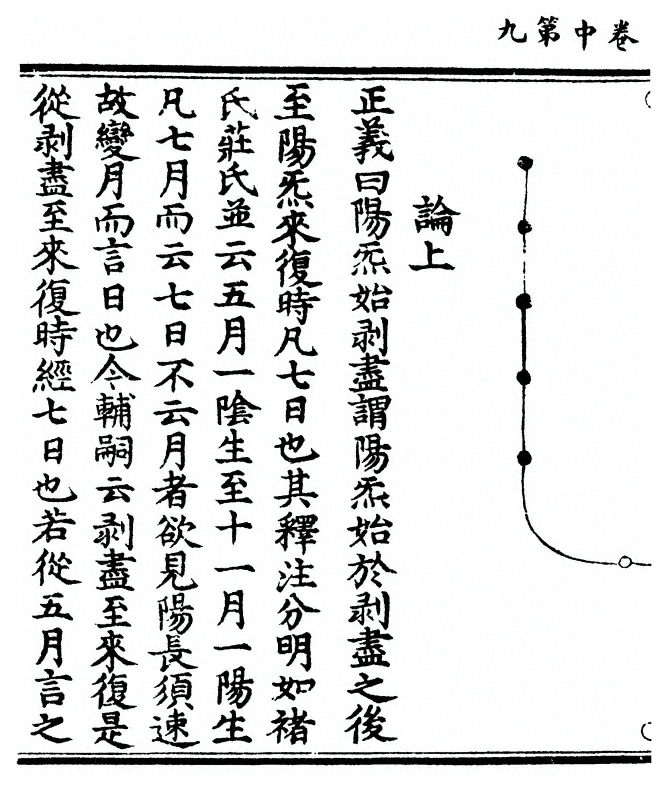 卷中第九
論上
正義曰陽炁始剥盡謂陽炁始於剥盡之後
至陽炁來復時凡七日也其釋注分明如褚
氏莊氏並云五月一陰生至十一月一陽生
凡七月而云七日不云月者欲見陽長須速
故變月而言日也今輔嗣云剥盡至來復是
從剥盡至來復時經七日也若從五月言之